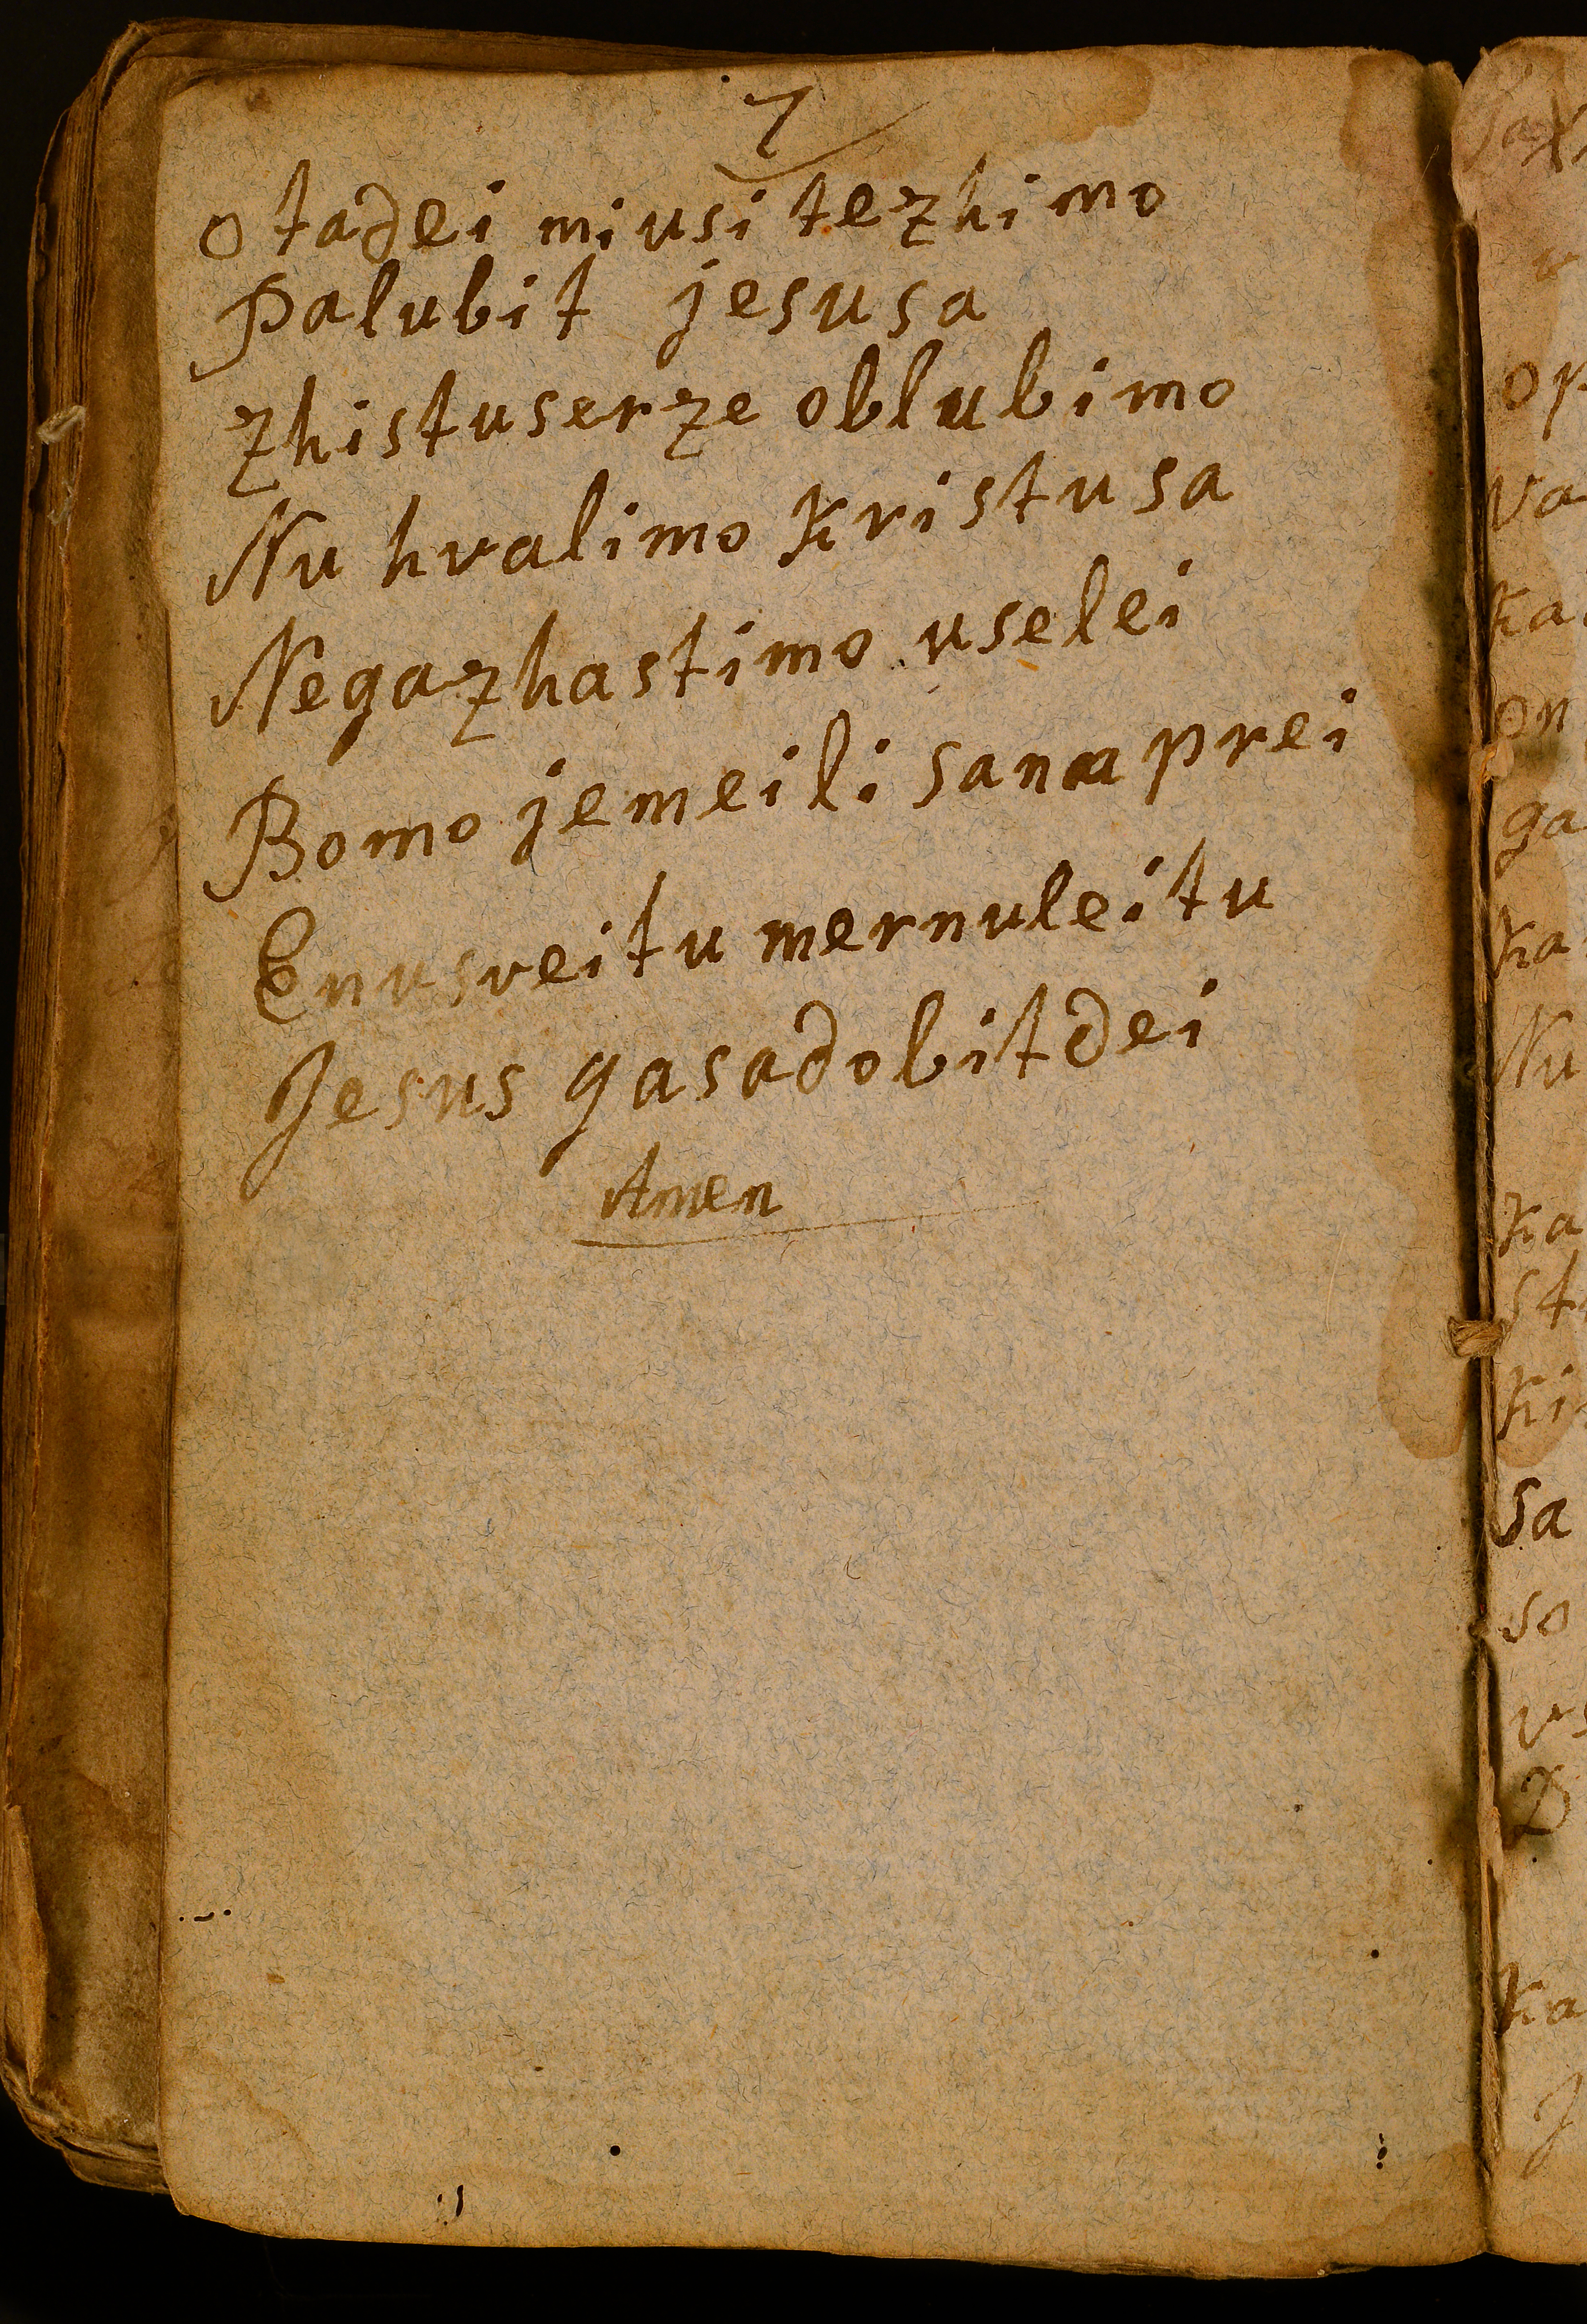 7
otadei miusi tezhimo
Palubit jesusa
zhistuserze oblubimo
Nu hvalimo Kristusa
Negazhastimo uselei
Bomo jemeili sanaa prei
Enusveitu mernuleitu
Jesus gasadobitdei
Amen
op
va
ka
on
ga
ka
Nu
ka
st
ki
sa
so
vs
D
ka
J